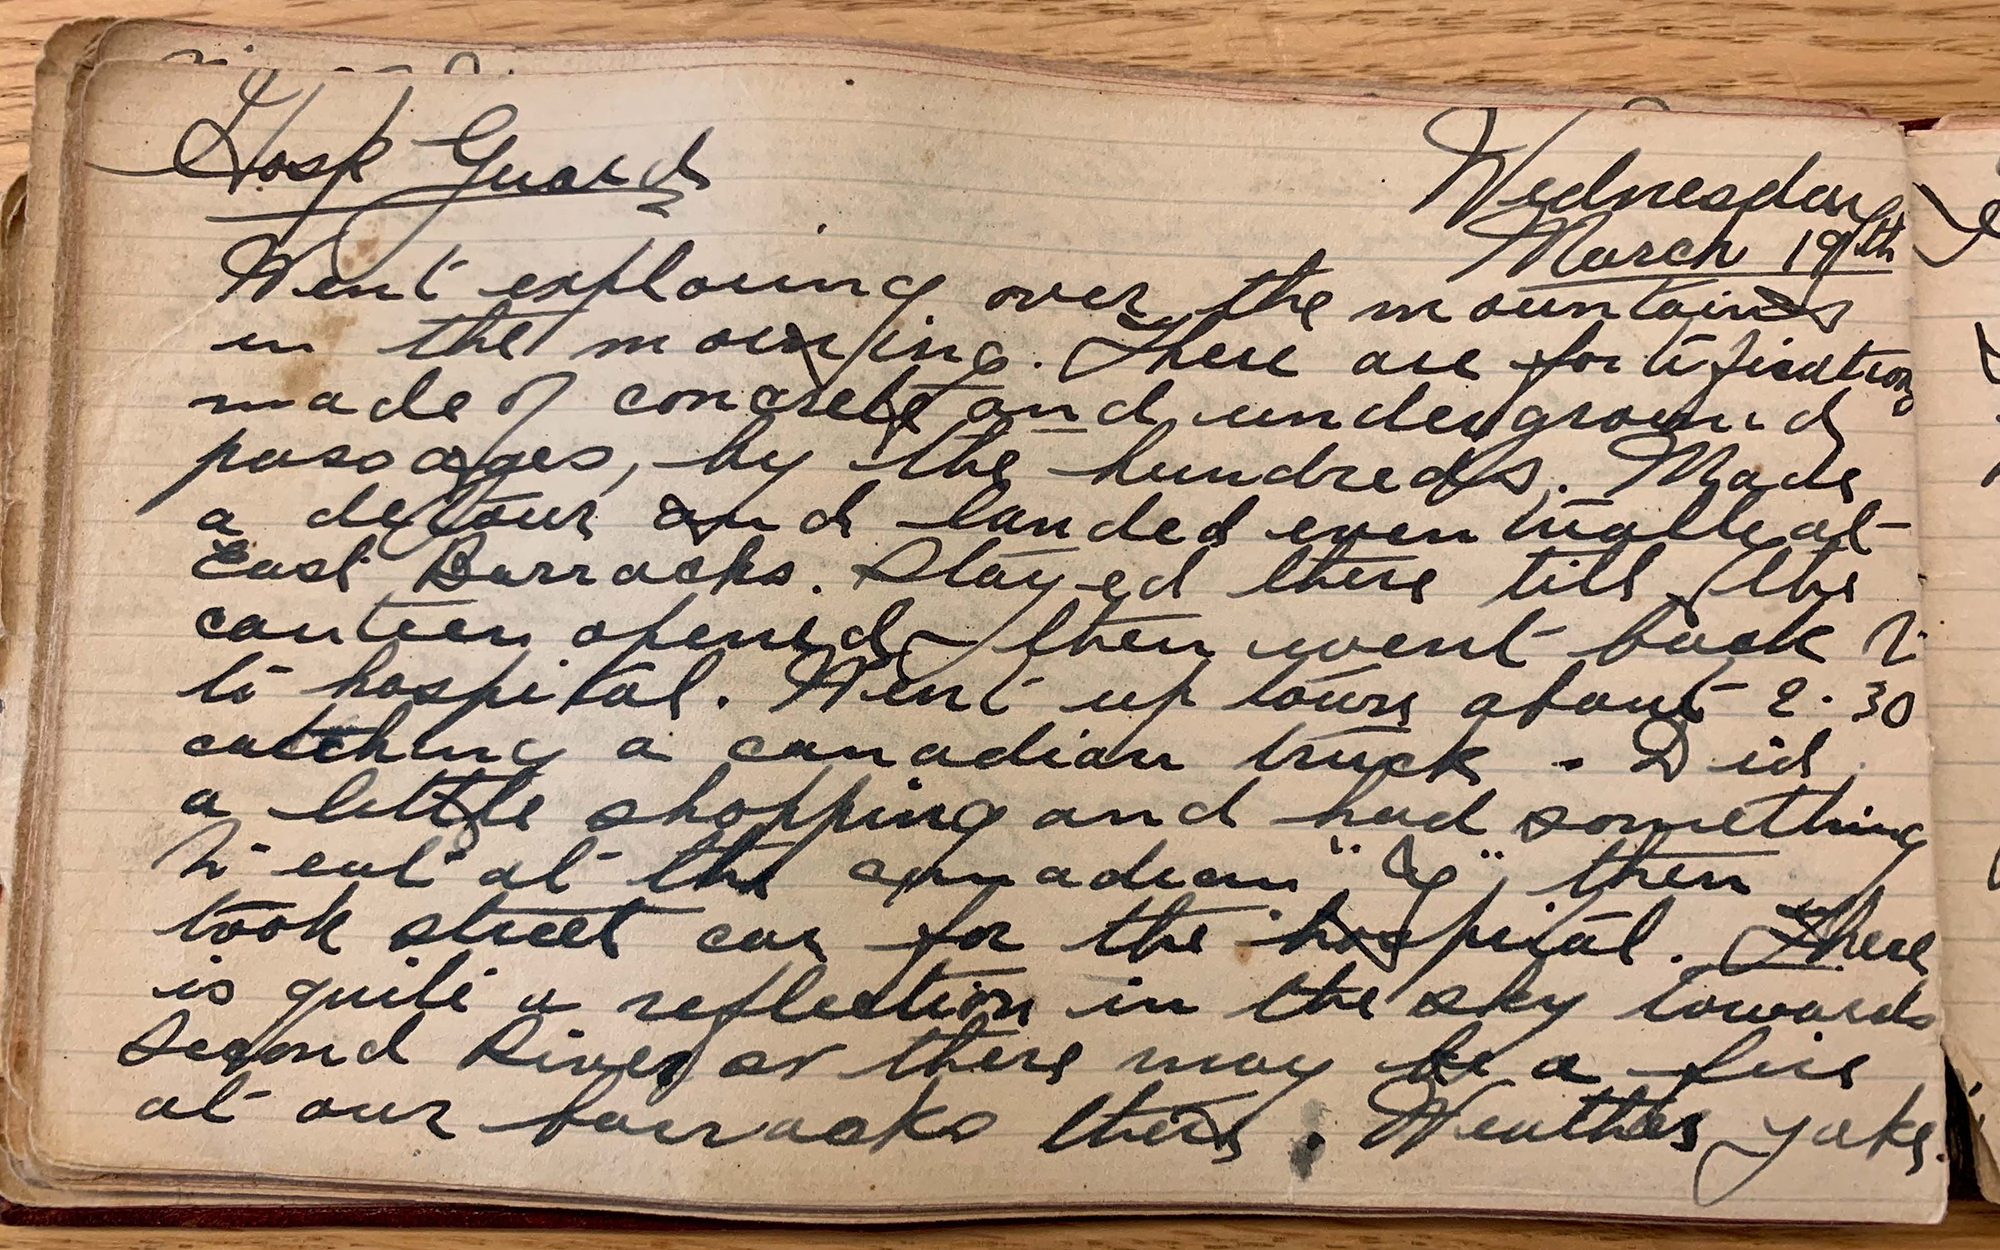 Hosp Guard
Wednesday
March 19th
Went exploring over the mountains
in the morning. There are fortifications
made of concrete and underground
passages, by the hundreds. Made
a detour and landed eventually at
East Barracks. Stayed there till the
canteen opened, then went back
to hospital. Went up town about 2.30
catching a canadian truck. Did
a little shopping and had something
to eat at the canadian "Y", then
took street car for the hospital. There
is quite a reflection in the sky towards
Second River or there may be a fire
at our barracks there. Weather